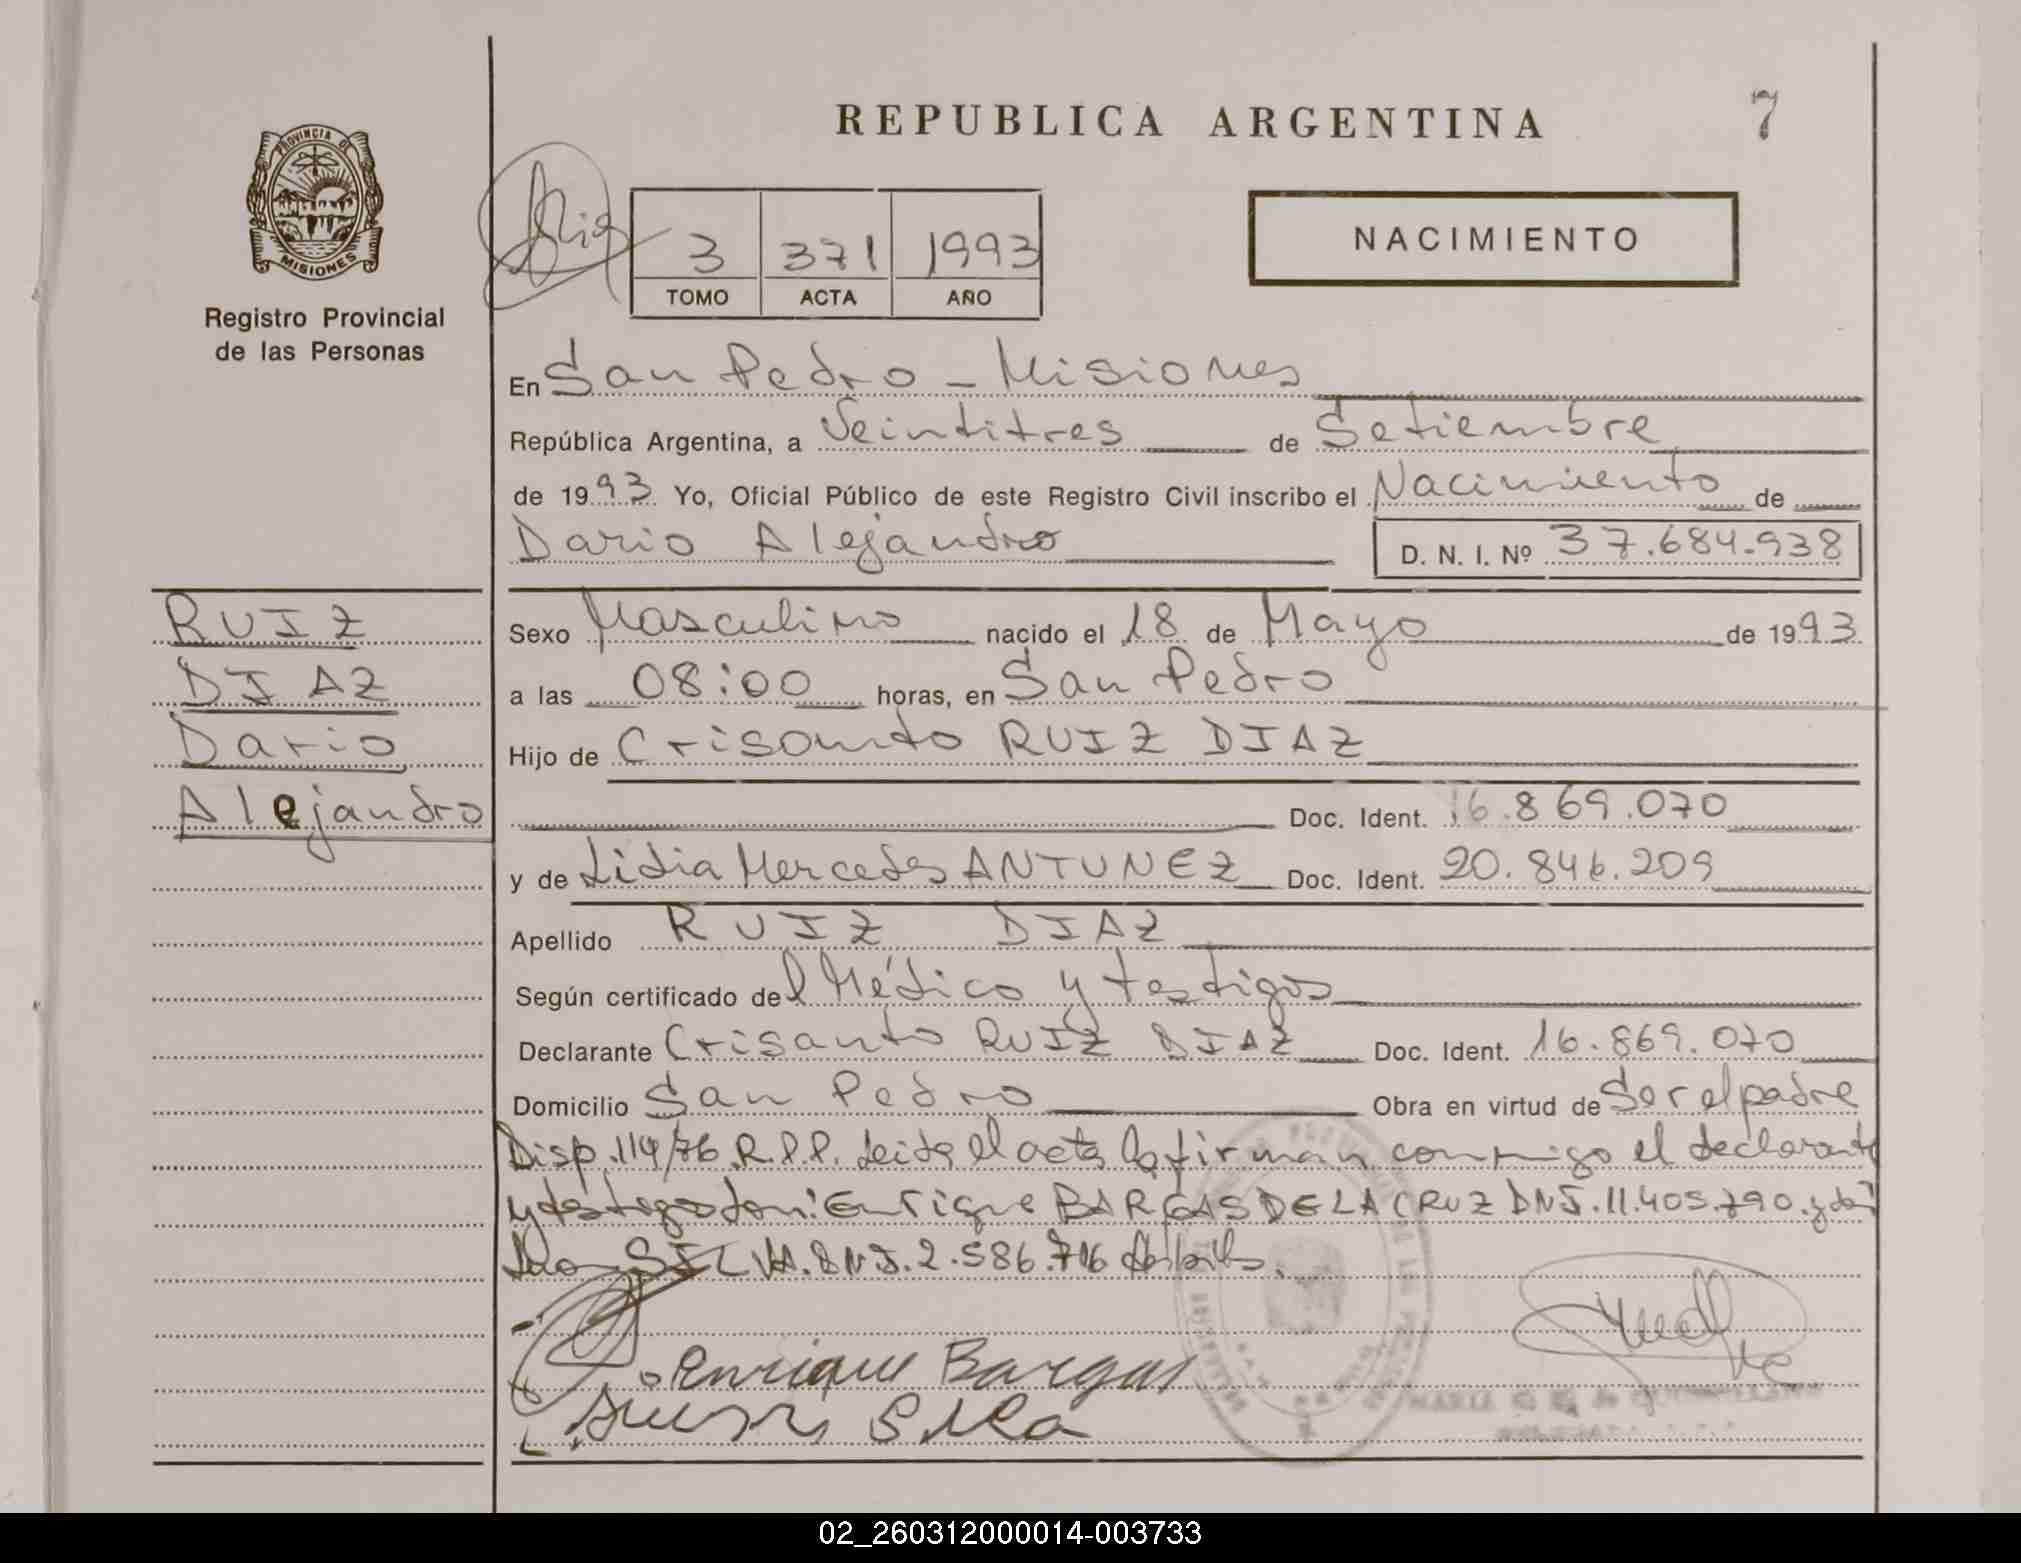 REPUBLICA ARGENTINA
7
PROVINCIA DE
MISIONES
Registro Provincial
de las Personas
3 371 1993
TOMO ACTA AÑO
NACIMIENTO
En San Pedro - Misiones
República Argentina, a Veintitres de Setiembre
de 1993 Yo, Oficial Público de este Registro Civil inscribo el Nacimiento de
Dario Alejandro D. N. I. Nº 37.684.938
RUIZ
DIAZ
Dario
Alejandro
Sexo Masculino nacido el 18 de Mayo de 1993
a las 08:00 horas, en San Pedro
Hijo de Crisanto RUIZ DIAZ
Doc. Ident. 16.869.070
y de Lidia Mercedes ANTUNEZ Doc. Ident. 20.846.209
Apellido RUIZ DIAZ
Según certificado del Médico y testigos
Declarante Crisanto RUIZ DIAZ Doc. Ident. 16.869.070
Domicilio San Pedro Obra en virtud de Ser el padre
Disp. 114/76 R.P.P. leida el acta la firman conmigo el declarante
y testigos don: Enrique BARGAS DE LA CRUZ DNI. 11.405.790. y
SILVA. DNI. 2.586.716
Enrique Bargas
Silva
02_260312000014-003733